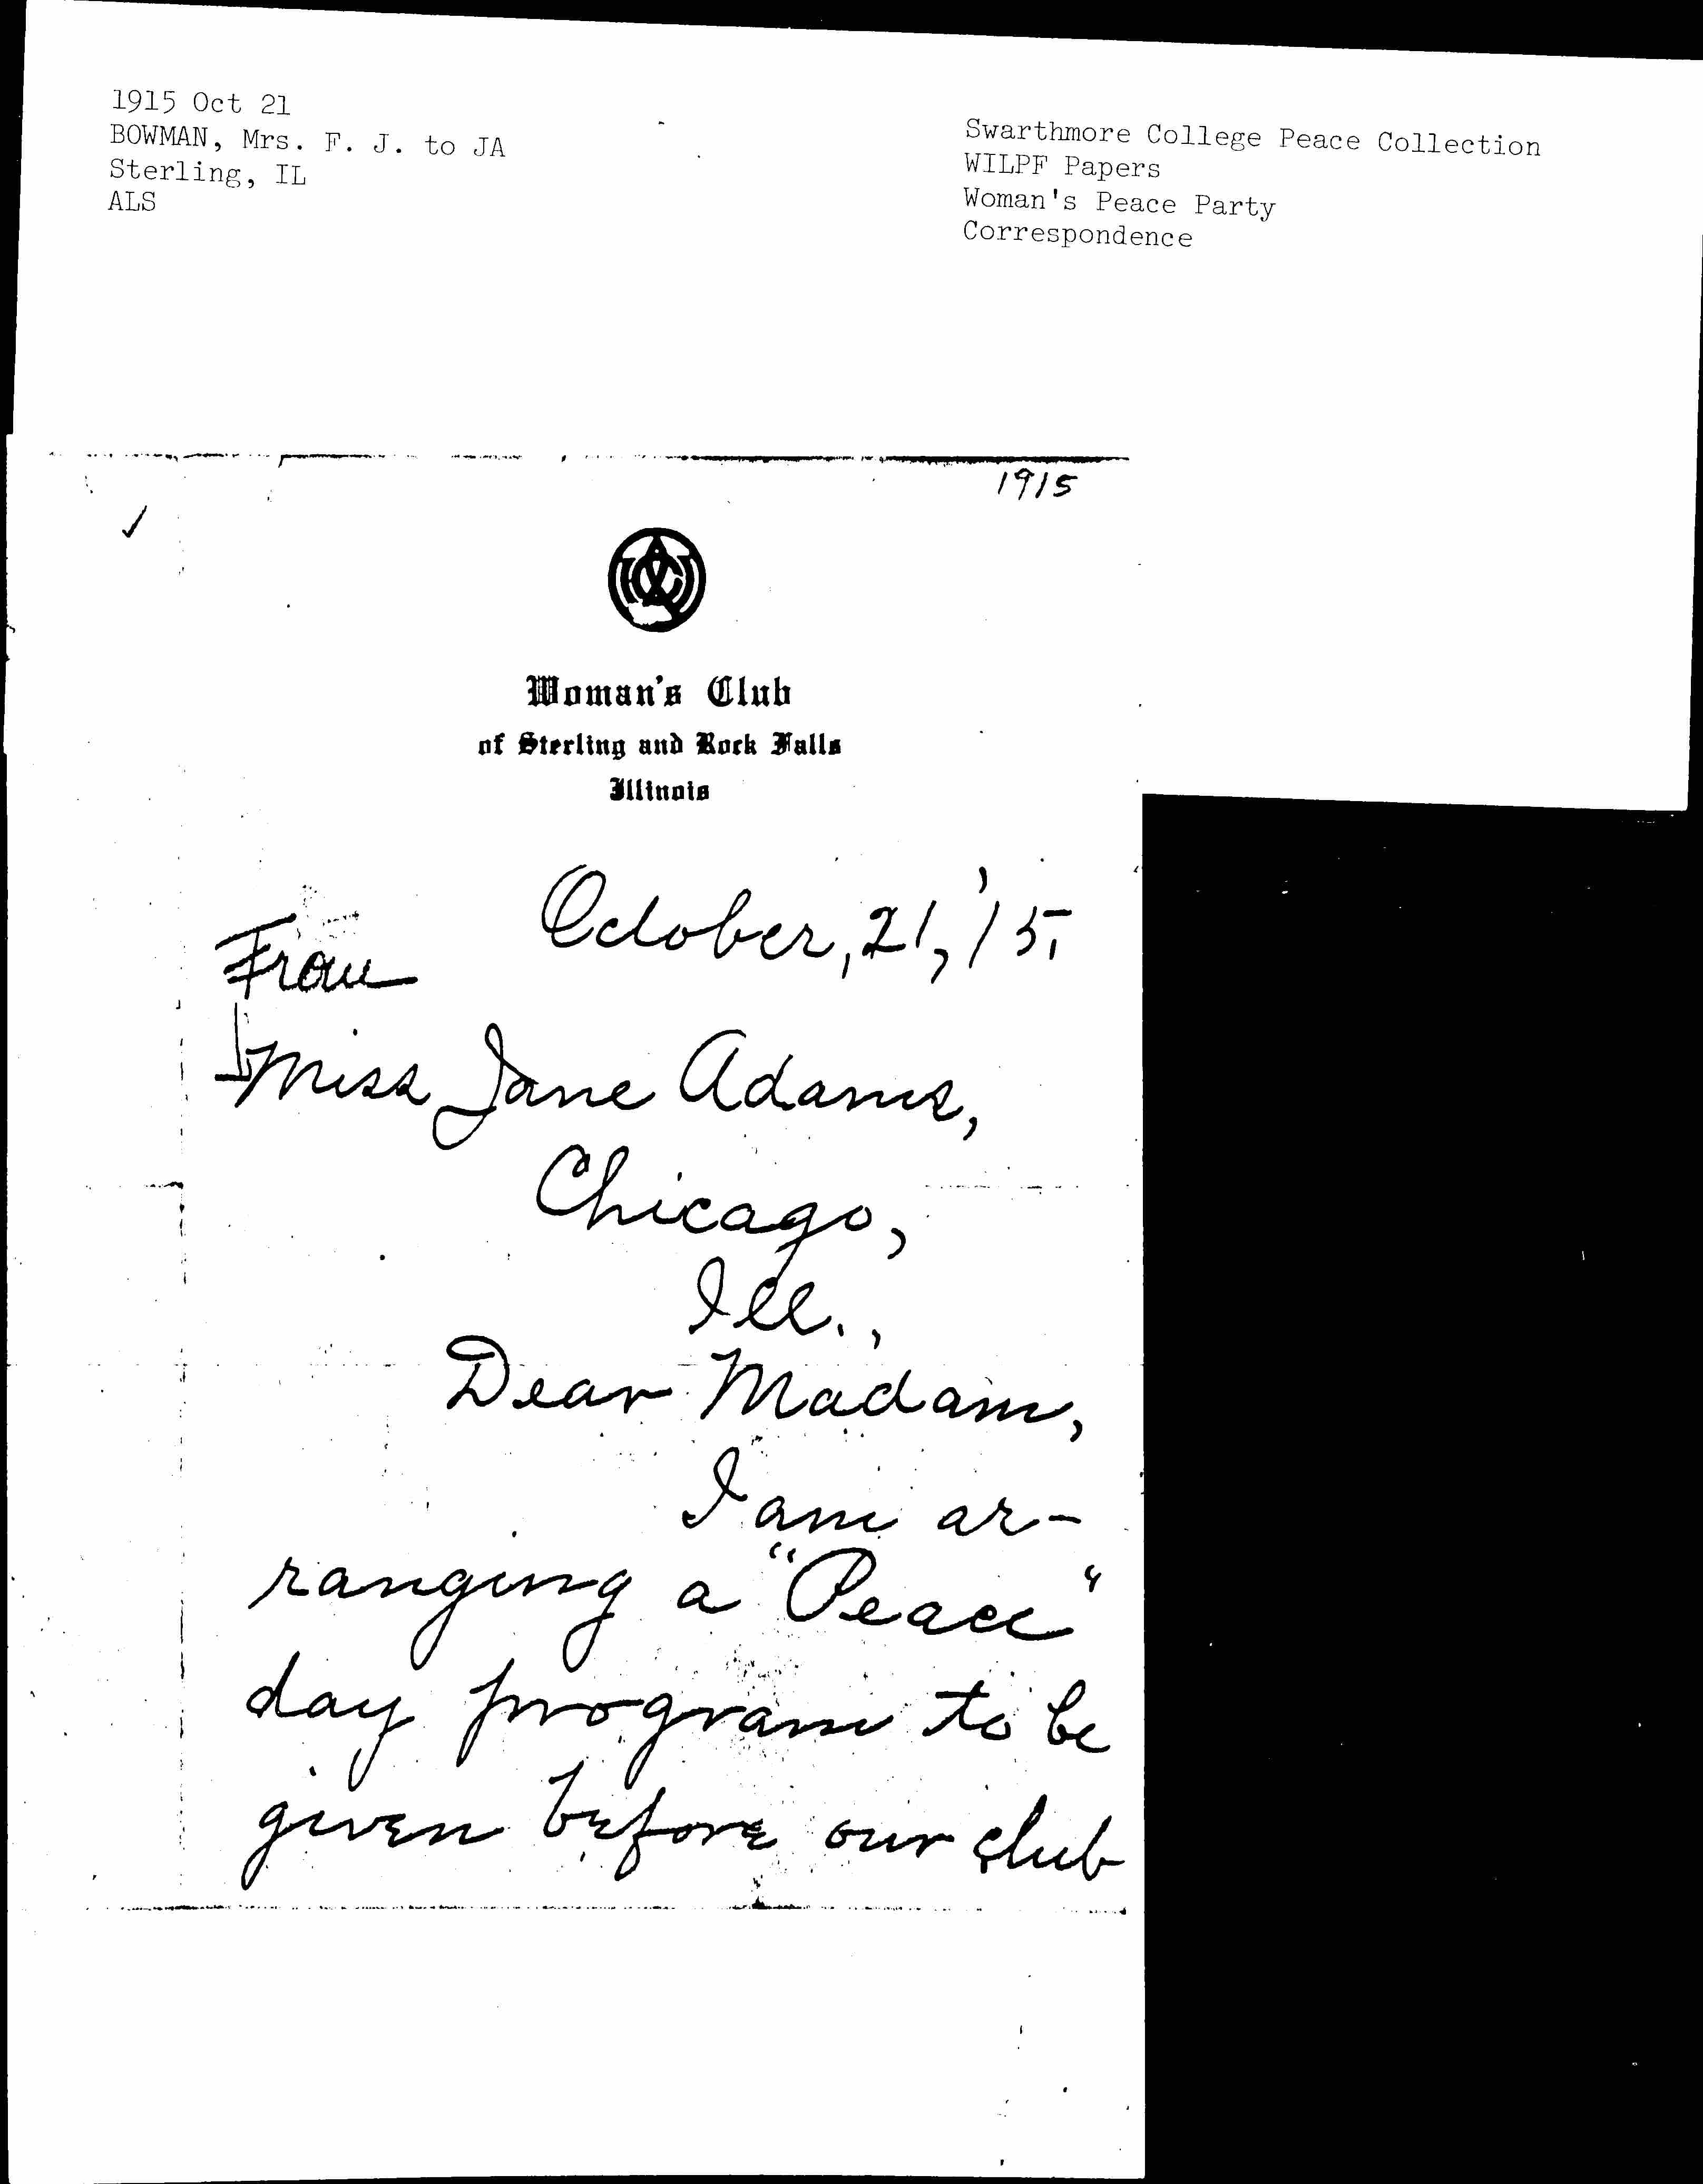 1915 Oct 21
BOWMAN, Mrs. F. J. to JA
Sterling, IL
ALS
Swarthmore College Peace Collection
WILPF Papers
Woman's Peace Party
Correspondence
1915
Woman's Club
of Sterling and Rock Falls
Illinois
October, 21, '15,
From
Miss Jane Adams,
Chicago,
Ill.,
Dear Madam,
I am ar-
ranging a "Peace"
day program to be
given before our club